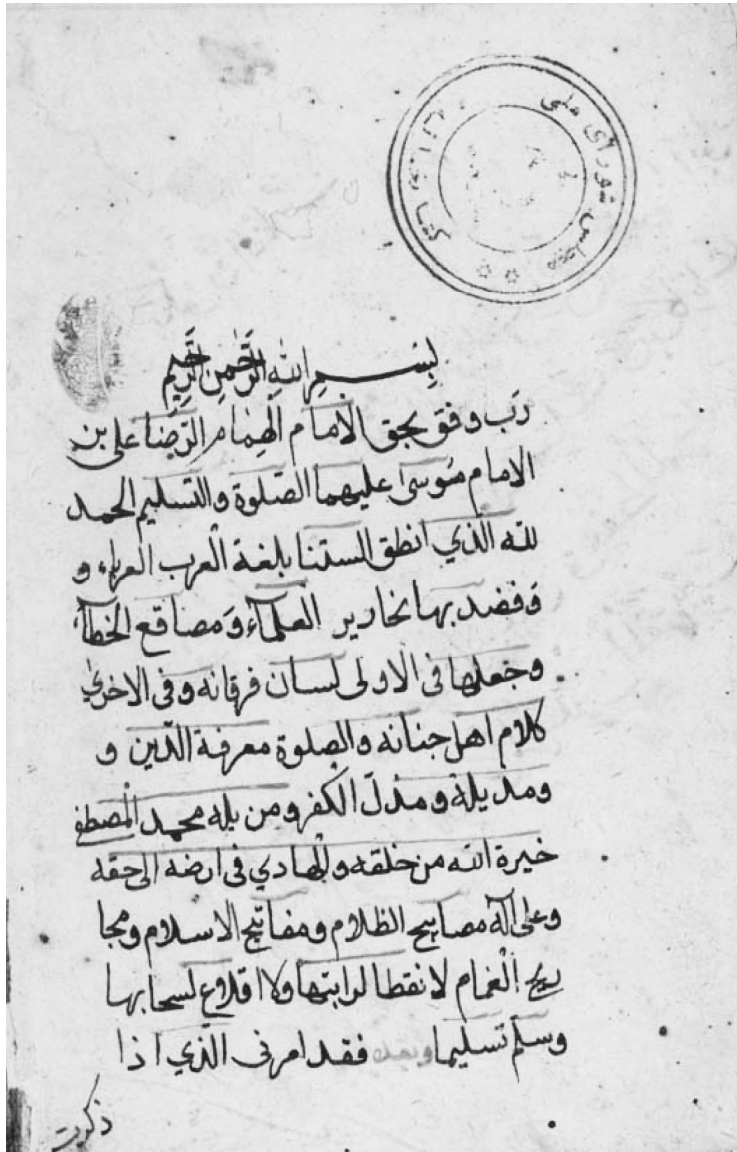 مجلس شورای ملی
بسم الله الرَّحمن الرَّحيم
رَب وفق بحق الامام الهمام الرضا على بن
الامام موسى عليهما الصلوة والتسليم الحمد
لله الذي انطق السنتنا بلغة العرب العرباء و
وفضد بها نحارير العلماء ومصاقع الخطآء
وجعلها فى الاولى لسان فرقانه وفى الاخرى
كلام اهل جنانه والصلوة معرفة الدين و
ومديله ومذل الكفر ومن يله محمد المصطفى
خيرة الله من خلقه والهادي فى ارضه الى حقه
وعلى اله مصابيح الظلام ومفاتيح الاسلام ومجا
ريح الغمام لا نقطا لرابتها ولا اقلاع لسحابها
وسلم تسليما وبعد فقد امرنى الذي اذا
ذكرت